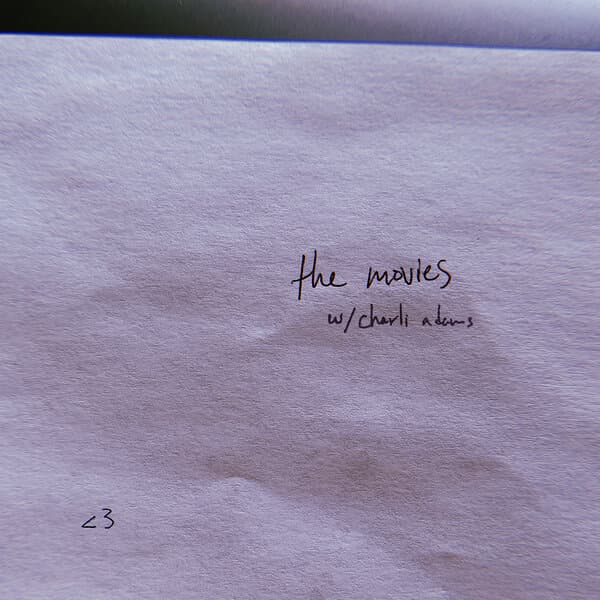 the movies
w/charli adams
<3